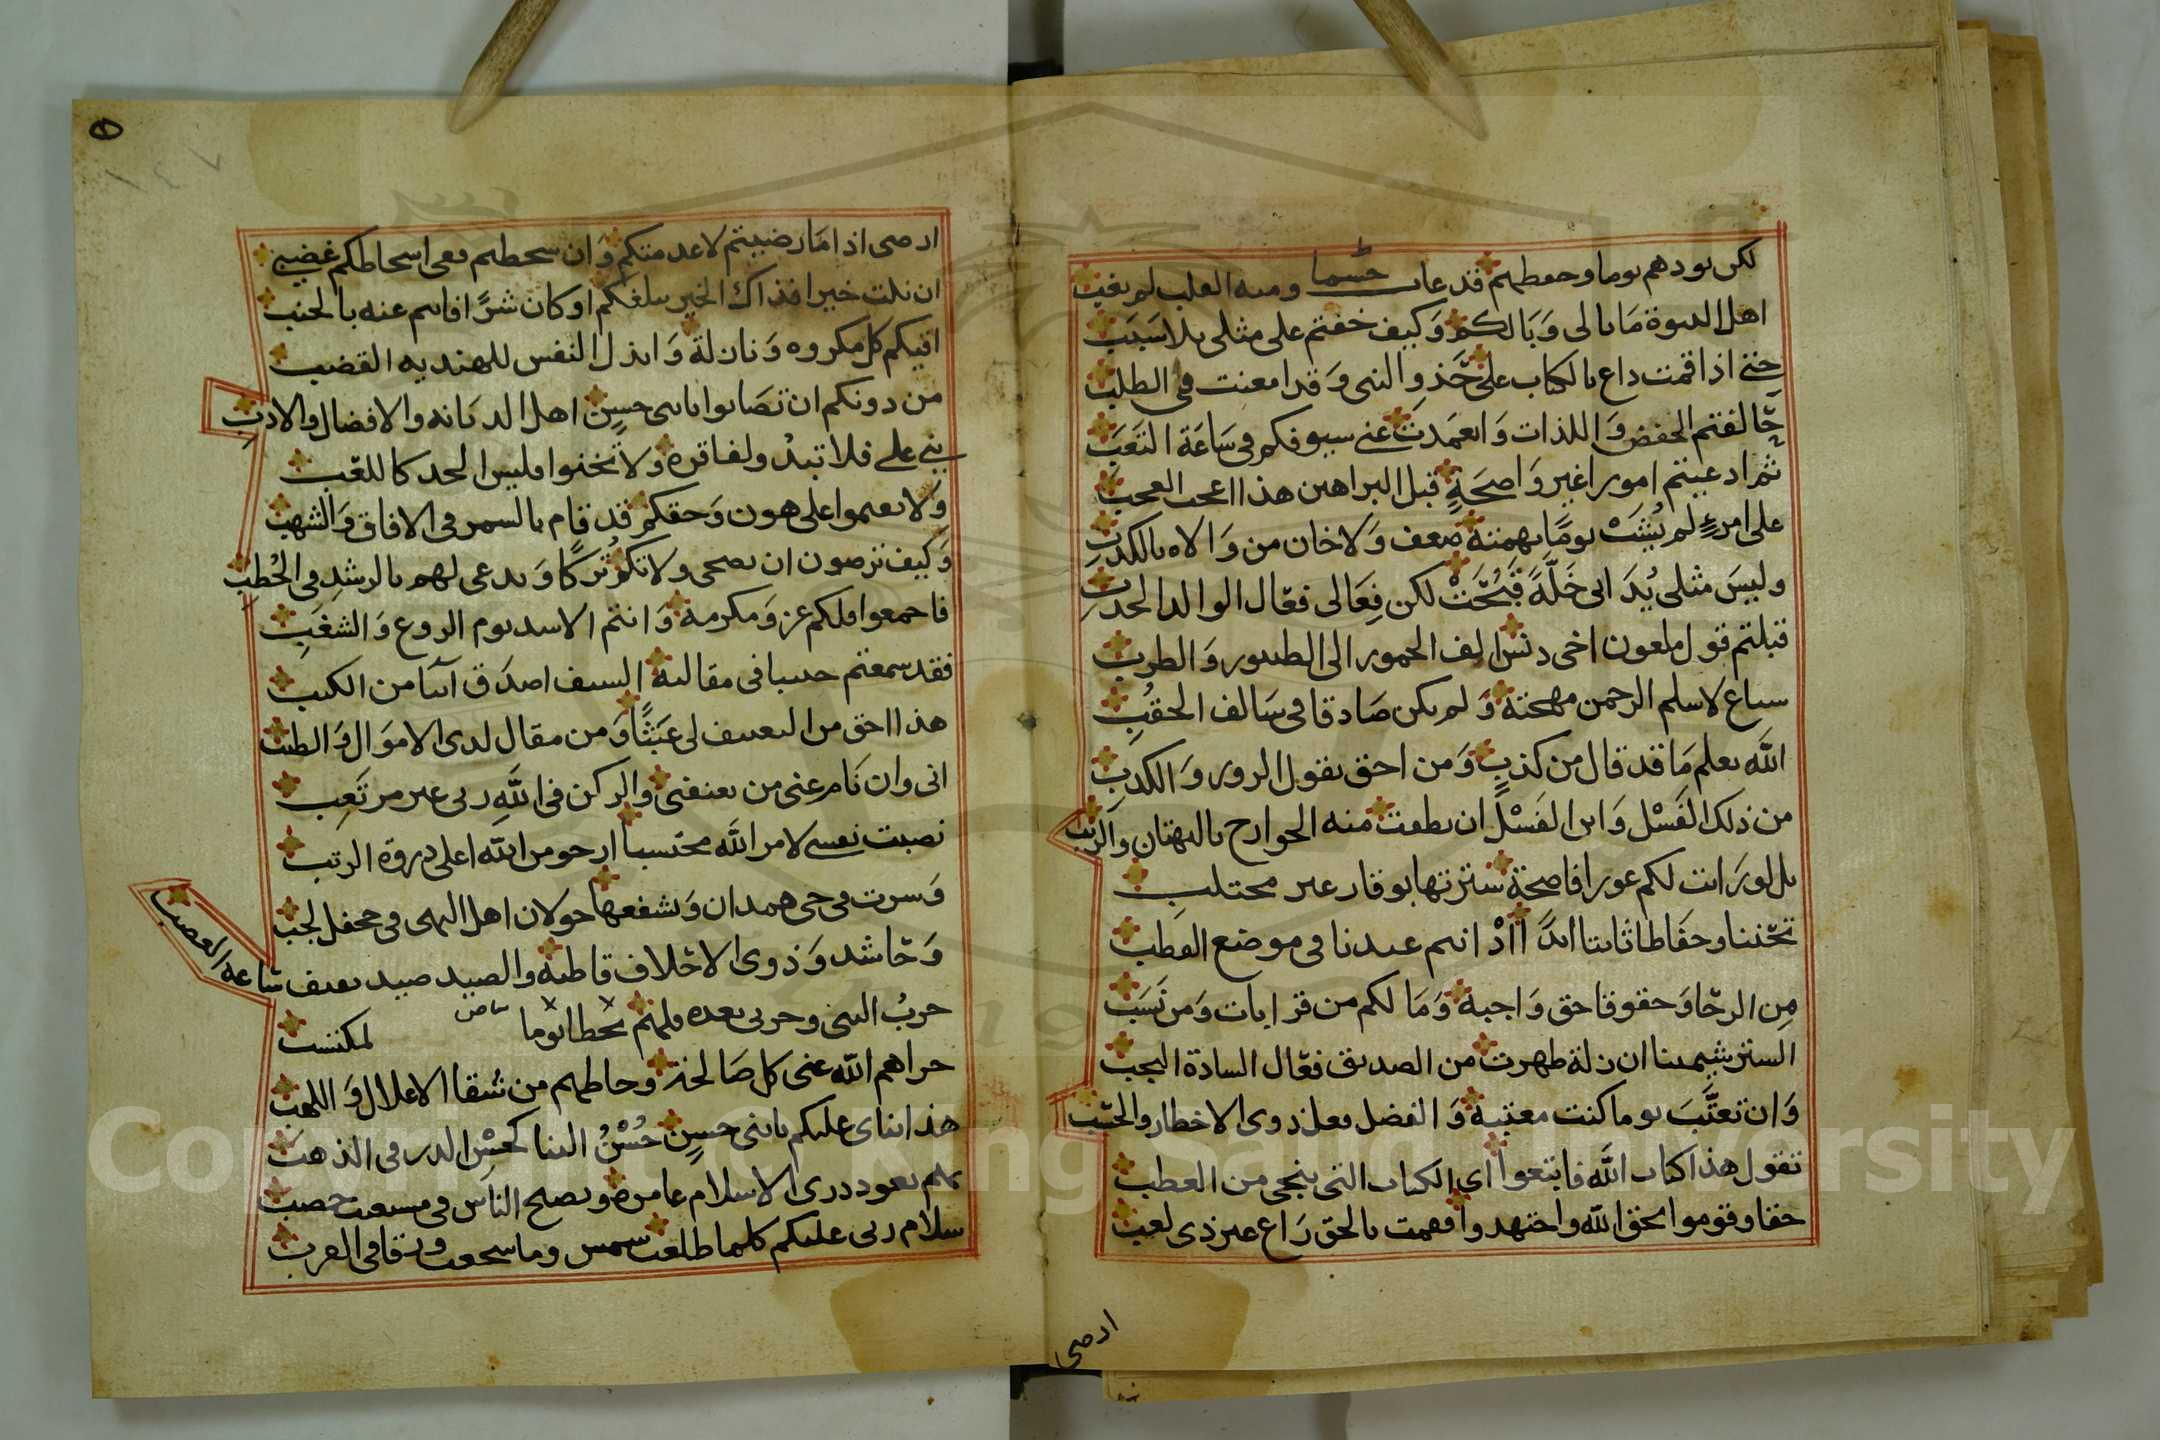 لكن نودهم يوما وحفظهم قد غاب جسما ومنه القلب لم يغب
اهل النبوة ما بالى وبالكم وكيف خفتم على مثلى بلا سبب
حتى اذا قمت داع بالكتاب على حذو النبى وقد امعنت فى الطلب
حالفتم الخفض واللذات وانعمدت عنى سيوفكم فى ساعة التعب
ثم ادعيتم امورا غير واضحة قبل البراهين هذا اعجب العجب
على امرء لم يشب يوما بهمته ضعف ولا خان من والاه بالكذب
وليس مثلى يدانى خلة قبحت لكن فعالى فعال الوالد الحدب
قبلتم قول ملعون اخى دنس الف الخمور الى الطنبور والطرب
سباع لا سلم الرحمن مهجته ولم يكن صادقا فى سالف الحقب
الله يعلم ما قد قال من كذب ومن احق بقول الزور والكذب
من ذلك الفسل وابن الفسل ان نطقت منه الجوارح بالبهتان والريب
بل لو رايت لكم عورا فاضحة سترتها بوقار غير محتلب
تحننا وحفاظا ثابتا ابدا اذ انتم عندنا فى موضع القطب
من الرحا وحقوقا حق واجبة وما لكم من قرابات ومن نسب
الستر شيمتنا ان زلة ظهرت من الصديق فعال السادة النجب
وان تعتب يوما كنت معتبه والفضل فعل ذوى الاخطار والحسب
تقول هذا كتاب الله فاتبعوا اى الكتاب التى ينجى من العطب
حقا وقوموا بحق الله واجتهدوا اقمت بالحق راع غير ذى لعب
ارضى
ارضى اذا ما رضيتم لا عدمتكم وان سخطتم فعى اسخاطكم غضبى
ان نلت خيرا فذاك الخير يبلغكم او كان شرا فانتم عنه بالجنب
اقيكم كل مكروه ونازلة وابذل النفس للهندية القضب
من دونكم ان تصابوا يا بنى حسن اهل الديانة والافضال والادب
بنى على فلا تبدو لفاقرة ولا تخنوا فليس الجد كاللعب
ولا نعموا على هون وحقكم قد قام بالسمر فى الافاق والشهب
وكيف ترضون ان نضحى ولا نكر تركا وندعى لهم بالرشد فى الخطب
فاجمعوا فلكم عز ومكرمة وانتم الاسد يوم الروع والشغب
فقد سمعتم حبيبا فى مقالته السيف اصدق انبا من الكتب
هذا احق من التعنيف لى عبثا ومن مقال لدى الاموال والطنب
انى وان نام عنى من يعنفنى والركن فى الله ربى غير مرتعب
نصبت نفسى لامر الله محتسبا ارجو من الله اعلى ذروة الرتب
وسرت فى حى همدان وتشفعها خولان اهل النهى فى جحفل لجب
وحاشد وذوى الاحلاف قاطبة والصيد صيد بعيف شاعة الغضب
حرب النبى وحربى بعده فلهم حظا يوما بياض لمكتسب
جزاهم الله عنى كل صالحة وحاطهم من شقا الاغلال واللهب
هذا ثناى عليكم يا بنى حسن حسن الثنا كحسن الدر فى الذهب
بهم يعود ذرى الاسلام عامرة ويصلح الناس فى مسبعت خصب
سلام ربى عليكم كلما طلعت شمس وما سجعت ورقا فى العرب